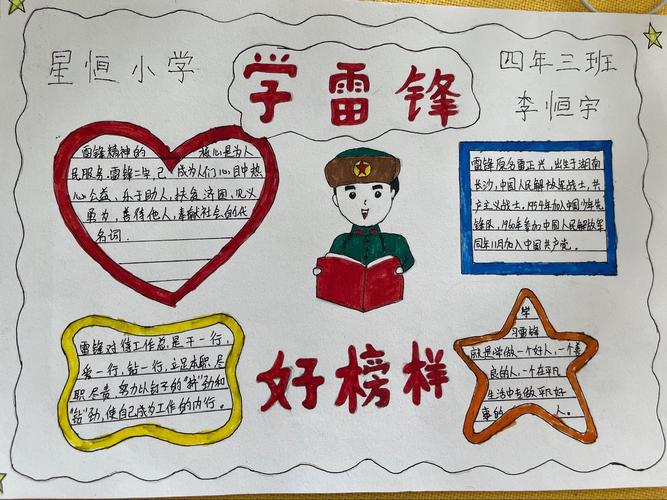 星恒小学
学雷锋
四年三班
李恒宇
雷锋精神的 核心是为人
民服务.雷锋二字,已 成为人们心目中热
心公益、乐于助人、扶贫济困、见义
勇为、善待他人、奉献社会的代
名词.
雷锋原名雷正兴,出生于湖南
长沙,中国人民解放军战士,共
产主义战士,1954年加入中国少年先
锋队,1960年参加中国人民解放军
同年11月加入中国共产党。
雷锋对待工作总是干一行,
爱一行,钻一行,立足本职,尽
职尽责,努力以钉子的“挤”劲和
“钻”劲,使自己成为工作的内行。
好榜样
学
习雷锋
就是学做一个好人,一个善
良的人,一个在平凡
生活中去做平凡好
事的 人。